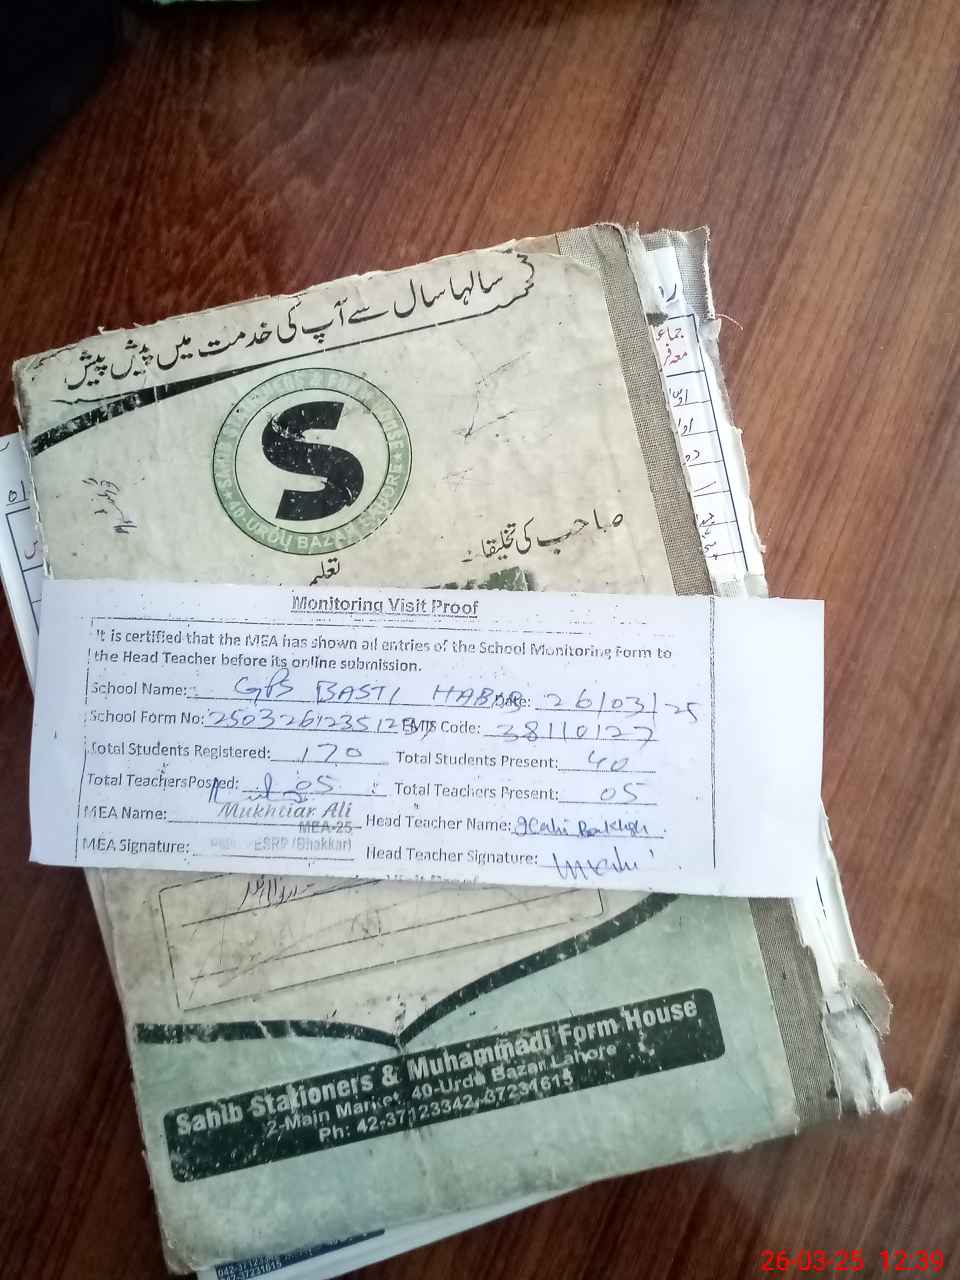 سالہا سال سے آپ کی خدمت میں پیش پیش
S
40-URDU BAZAR LAHORE
صاحب کی تخلیقات
تعلیم
Monitoring Visit Proof
It is certified that the MEA has shown all entries of the School Monitoring Form to
the Head Teacher before its online submission.
School Name: GPS BASTI HABIB Date: 26/03/25
School Form No: EMIS Code: 38110127
Total Students Registered: 170 Total Students Present: 40
Total Teachers Posted: 05 Total Teachers Present: 05
MEA Name: Mukhtiar Ali Head Teacher Name:
MEA-25
MEA Signature: ESRP (Bhakkar) Head Teacher Signature:
Visit Proof
Sahib Stationers & Muhammadi Form House
2-Main Market, 40-Urdu Bazar Lahore
Ph: 42-37123342, 37231615
26-03-25 12:39